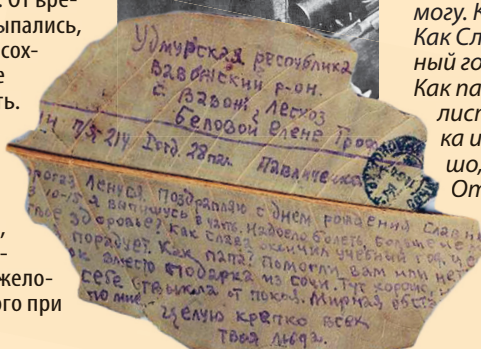 . От вре-
ыпались,
сох-
е
ть.
,
-
жело-
ого при
Удмурская республика
Вавожский р-он.
с. Вавож Лесхоз
Беловой Елене Троф
п/я 214 I отд. 28 пал. Павличенко
рогая Ленуся. Поздравляю с днем рождения Слави
3 10-15 я выпишусь в часть. Надоело болеть, больше не
твое здоровье? как Слава окончил учебный год, че
порадует. Как папа? Помогли вам или нет
ок вместо подарка из Сочи. Тут хорошо,
себе отвыкла от покоя. Мирная обста
по мне. целую крепко всех
твоя Люда.
могу. К
Как Сл
ный го
Как па
лист
ка и
шо,
От